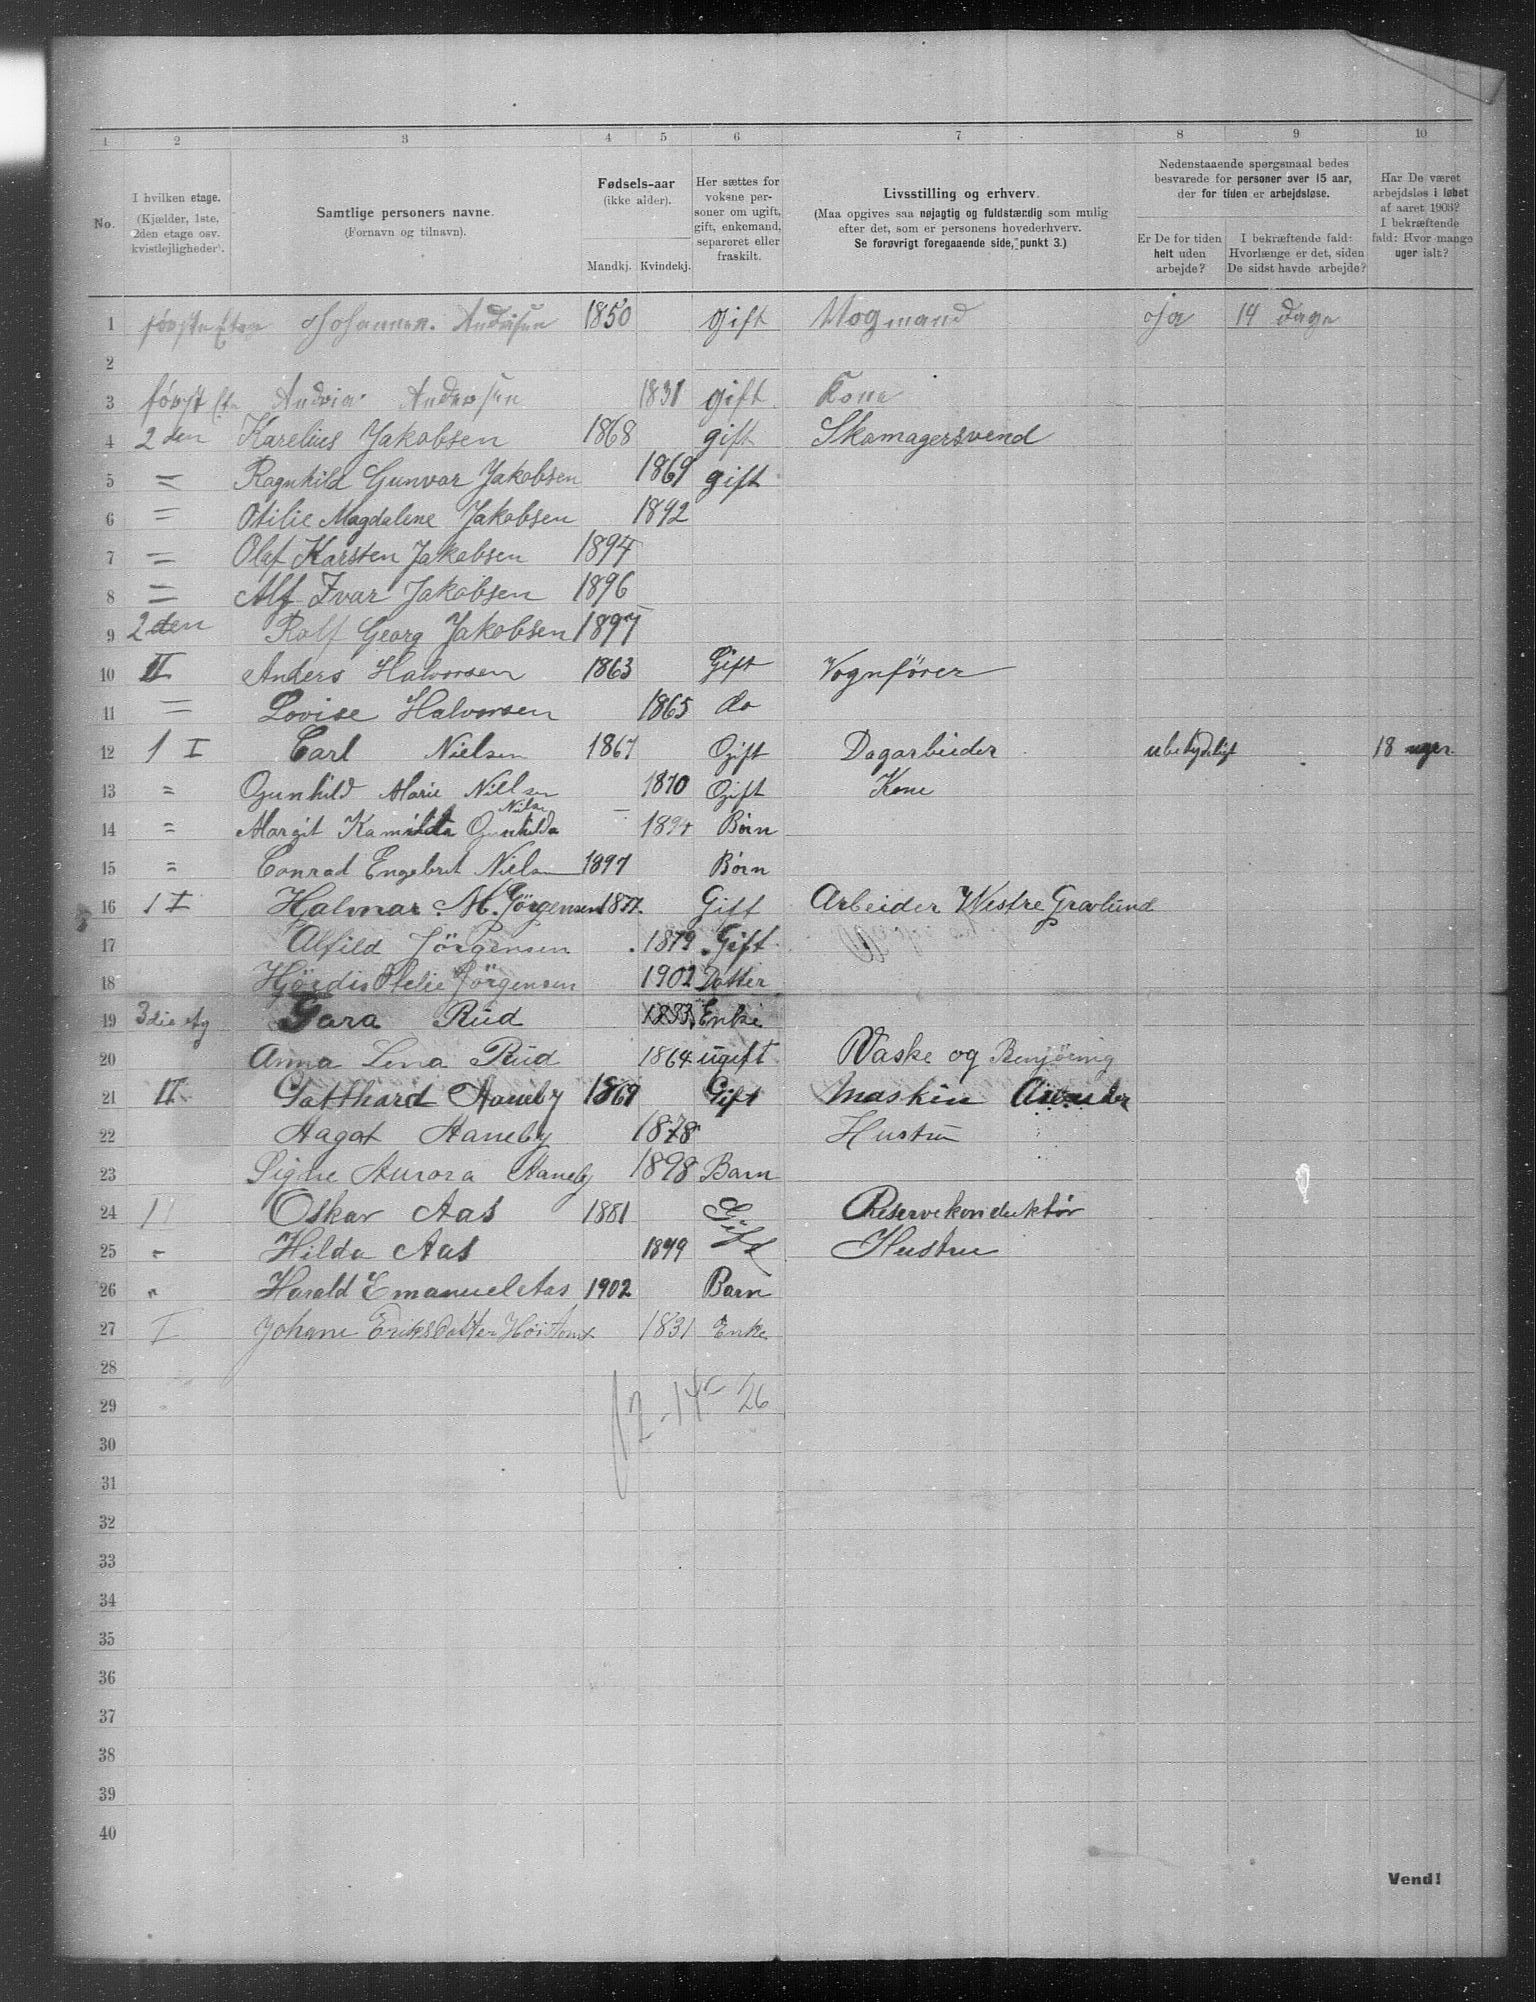 1 2 3 4 5 6 7 8 9 10
No.
I hvilken etage.
(Kjælder, 1ste,
2den etage osv.
kvistlejligheder).
Samtlige personers navne.
(Fornavn og tilnavn).
Fødsels-aar
(ikke alder).
Mandkj. Kvindekj.
Her sættes for
voksne per-
soner om ugift,
gift, enkemand,
separeret eller
fraskilt.
Livsstilling og erhverv.
(Maa opgives saa nøjagtig og fuldstændig som mulig
efter det, som er personens hovederhverv.
Se forøvrigt foregaaende side, punkt 3.)
Nedenstaaende spørgsmaal bedes
besvarede for personer over 15 aar,
der for tiden er arbejdsløse.
Er De for tiden
helt uden
arbejde?
I bekræftende fald:
Hvorlænge er det, siden
De sidst havde arbejde?
Har De været
arbejdsløs i løbet
af aaret 1903?
I bekræftende
fald: Hvor mange
uger ialt?
1 første Johannes Andersen 1850 gift Vogmand Ja 14 Dage
2
3 først Andersen 1831 gift Kone
4 2den Karelius Jakobsen 1868 gift Skomagersvend
5 = Ragnhild Gunvor Jakobsen 1869 gift
6 = Otilie Magdalene Jakobsen 1892
7 = Olaf Karsten Jakobsen 1894
8 = Alf Ivar Jakobsen 1896
9 2den Rolf Georg Jakobsen 1897
10 II Anders Halvorsen 1863 Gift Vognfører
11 = Lovise Halvorsen 1865 do
12 1 I Carl Nielsen 1867 Gift Dagarbeider ubetydeligt 18 uger
13 " Gunhild Marie Nielsen 1870 Gift Kone
Nilsen
14 " Margit Kamilda Gunhilda Børn
15 " Conrad Engebret Nielsen 1897 Børn
16 1 I Halmar M. Jörgensen 1877. Gift Arbeider Westre Gravlund
17 Alfild Jörgensen 1879 Gift
18 Hjördis Otelie Jörgensen 1902 Datter
19 3die Etg Rud 1833 Enke
20 Anna Lena Rud 1864 ugift Vaske og Renjöring
21 II Gotthard Haneby 1869 Gift Maskin Arbeider
22 Hagot Haneby 1878 Hustru
23 Signe Aurora Haneby 1898 Barn
24 II Oskar Aas 1881 Gift Reservekonduktør
25 " Hilda Aas 1879 Hustru
26 " Harald Emanuel Aas 1902 Barn
27 I Johane Eriksdatter 1831 Enke
28
29
12-14 = 26
30
31
32
33
34
35
36
37
38
39
40
Vend!